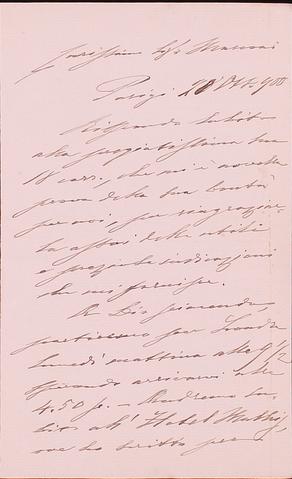 Carissimo Sig. Mancini
Parigi 20 Ott. 900
Rispondo subito
alla pregiatissima sua
18 corr., che mi è novella
prova della sua bontà
per noi, e per ringraziar-
la assai delle utili
e preziose indicazioni
che mi fornisce.
A Dio piacendo,
partiremo per Londra
lunedì mattina alle 9 1/2
sperando arrivarci alle
4.50 p. – Andremo su-
bito all' Hotel
ove ho scritto per